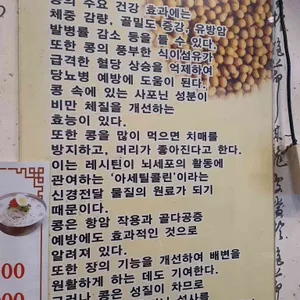 콩의 주요 건강 효과에는
체중 감량, 골밀도 증강, 유방암
발병률 감소 등을 들 수 있다.
또한 콩의 풍부한 식이섬유가
급격한 혈당 상승을 억제하여
당뇨병 예방에 도움이 된다.
콩 속에 있는 사포닌 성분이
비만 체질을 개선하는
효능이 있다.
또한 콩을 많이 먹으면 치매를
방지하고, 머리가 좋아진다고 한다.
이는 레시틴이 뇌세포의 활동에
관여하는 '아세틸콜린'이라는
신경전달 물질의 원료가 되기
때문이다.
콩은 항암 작용과 골다공증
예방에도 효과적인 것으로
알려져 있다.
또한 장의 기능을 개선하여 배변을
원활하게 하는 데도 기여한다.
그러나 콩은 성질이 차므로
설사를
00
00